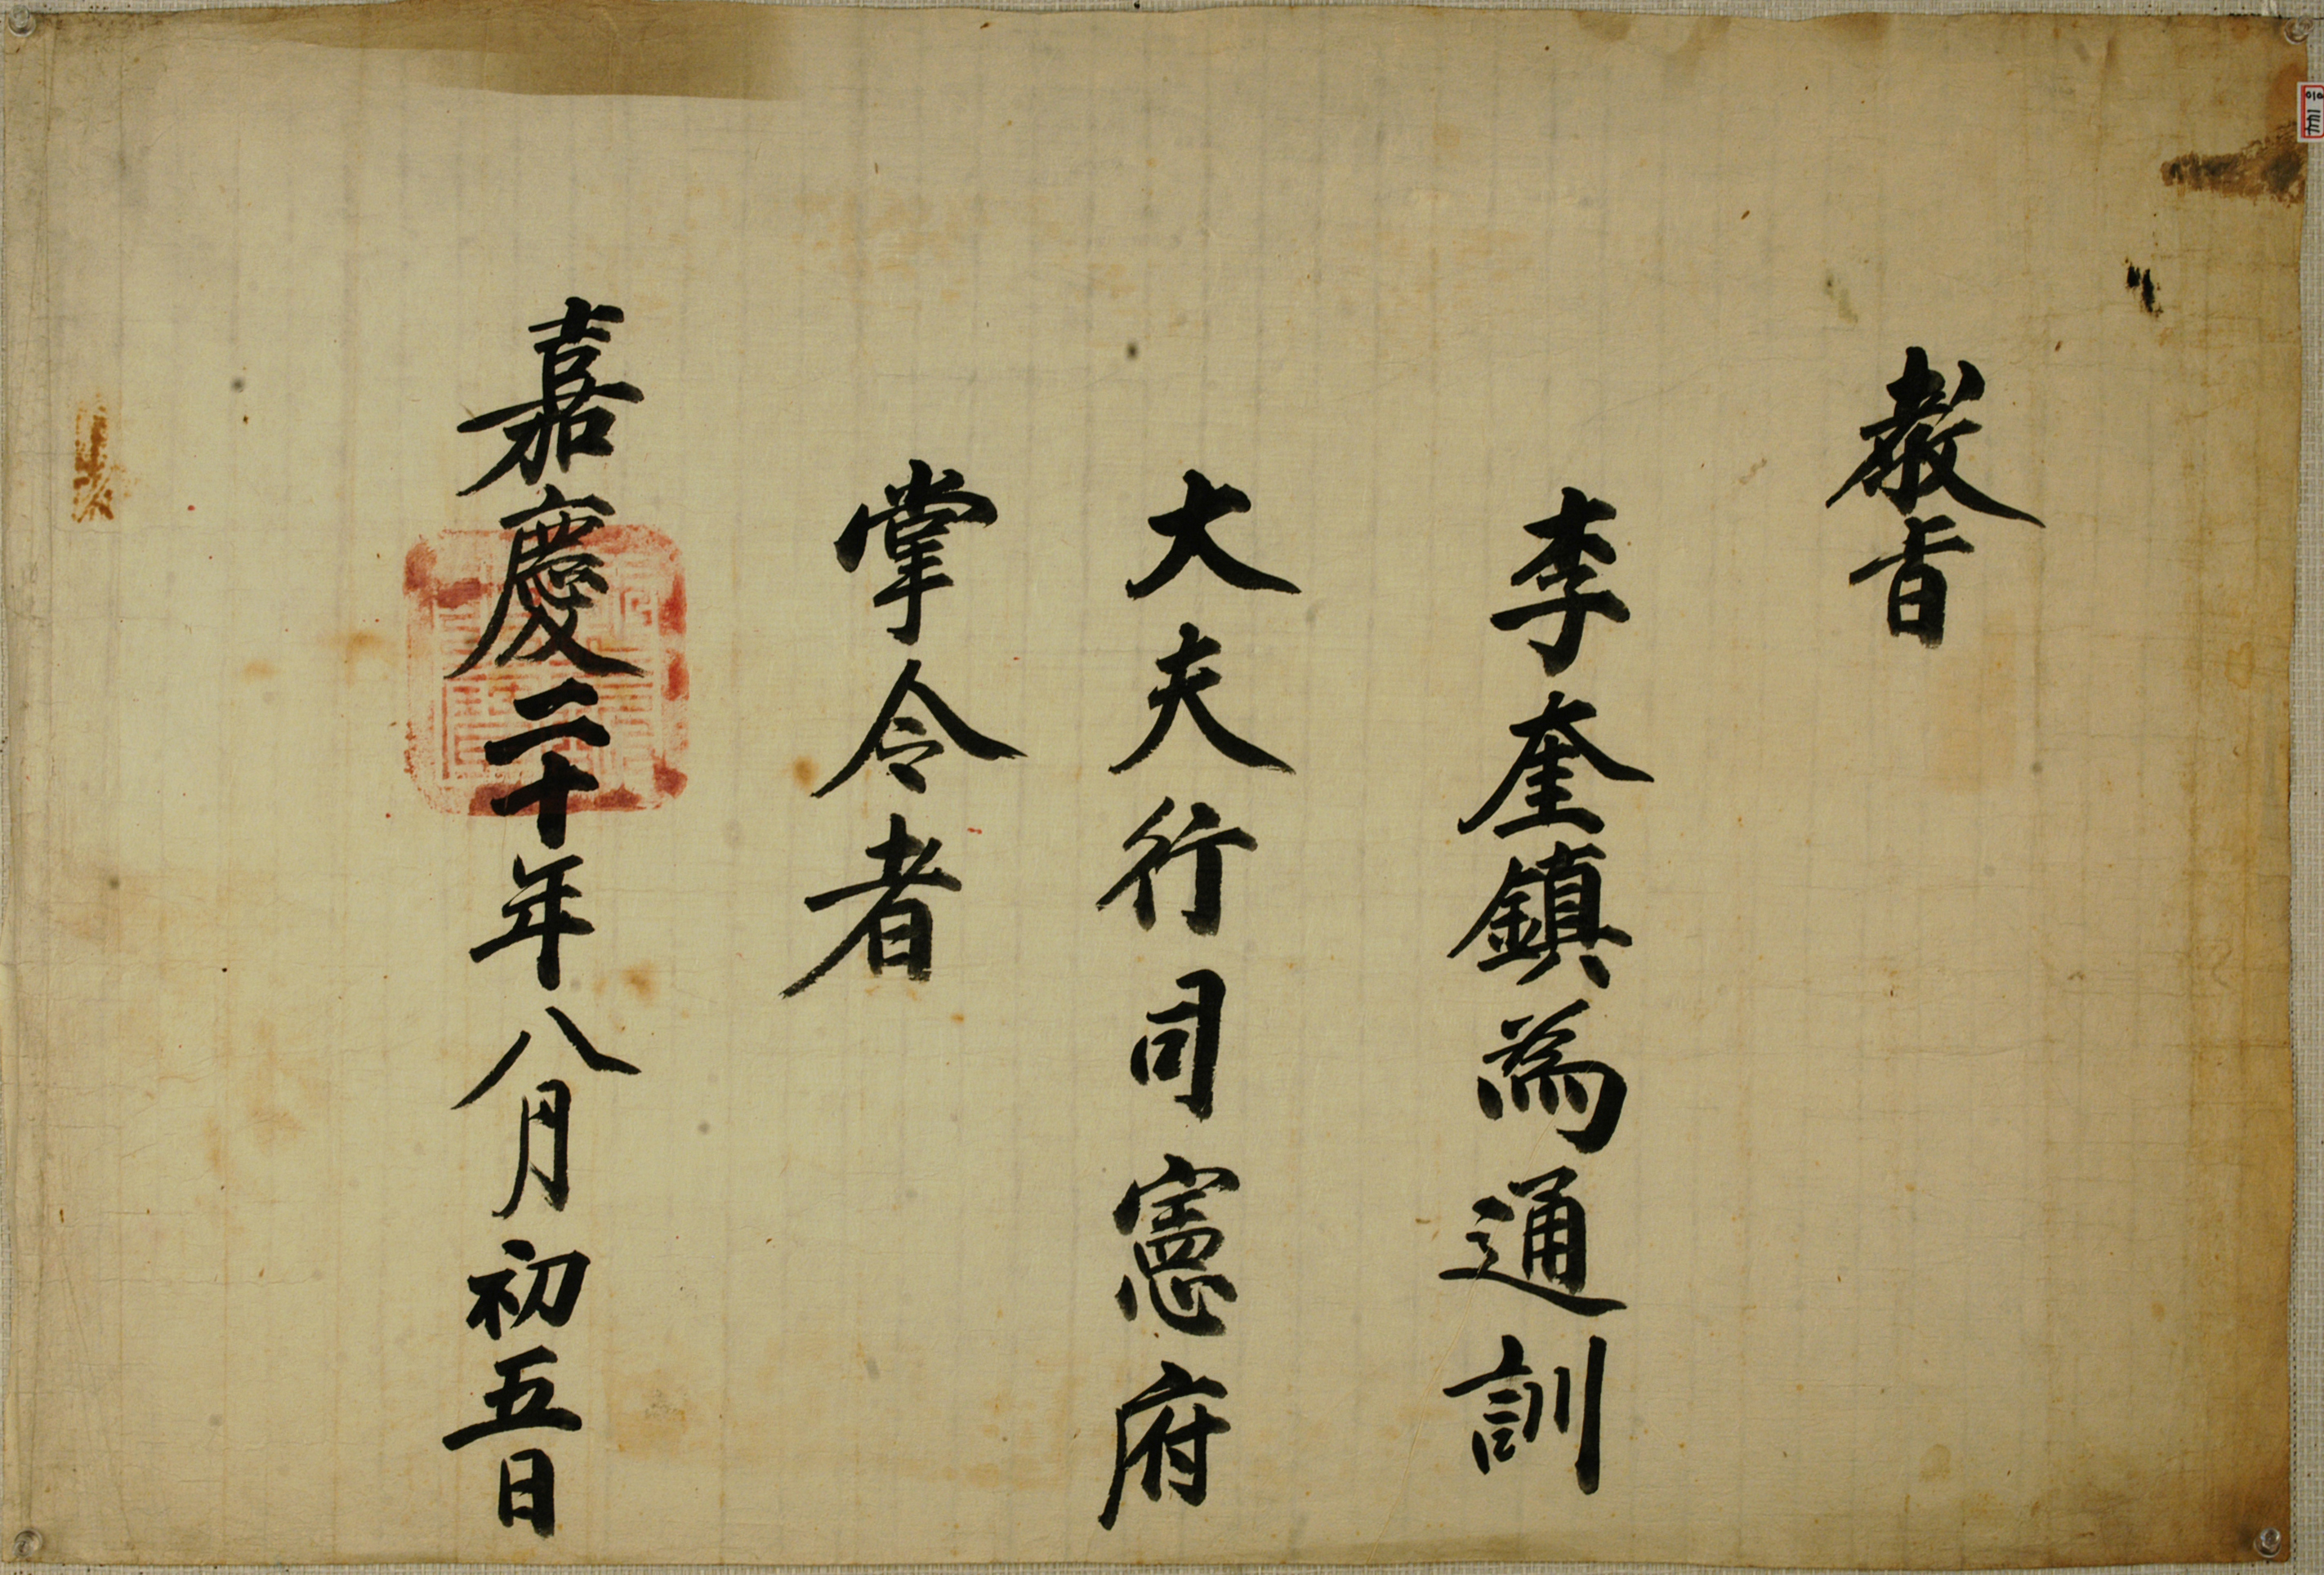 敎旨
李奎鎭為通訓
大夫行司憲府
掌令者
嘉慶二十年八月初五日